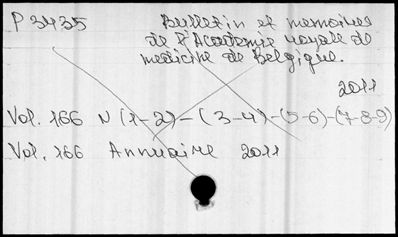 P 3435 Bulletin et memoires
de l'Academie royale de
medicine de Belgique.
2011
Vol. 166 N (1-2)-(3-4)-(5-6)-(7-8-9)
Vol. 166 Annuaire 2011